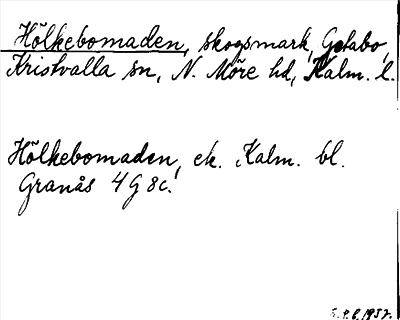 Hölkebomaden, skogsmark, Getabo,
Kristvalla sn, N. Möre hd, Kalm. l.
Hölkebomaden, ek. Kalm. bl.
Granås 4 G 8c.
1957.